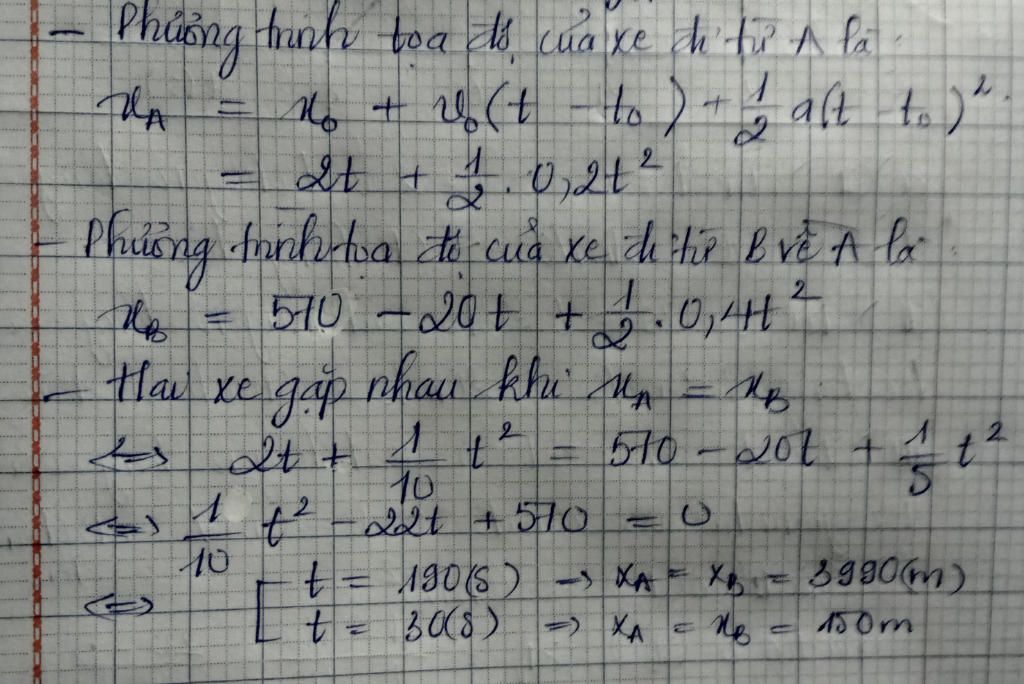 - Phương trình tọa độ của xe đi từ A là:
x_A = x_0 + v_0(t - t_0) + 1/2 a(t - t_0)².
= 2t + 1/2 . 0,2t²
- Phương trình tọa độ của xe đi từ B về A là:
x_B = 570 - 20t + 1/2 . 0,4t²
- Hai xe gặp nhau khi x_A = x_B
⇔ 2t + 1/10 t² = 570 - 20t + 1/5 t²
⇔ 1/10 t² - 22t + 570 = 0
⇔ [ t = 190(s) → x_A = x_B = 3990(m)
t = 30(s) ⇒ x_A = x_B = 150m